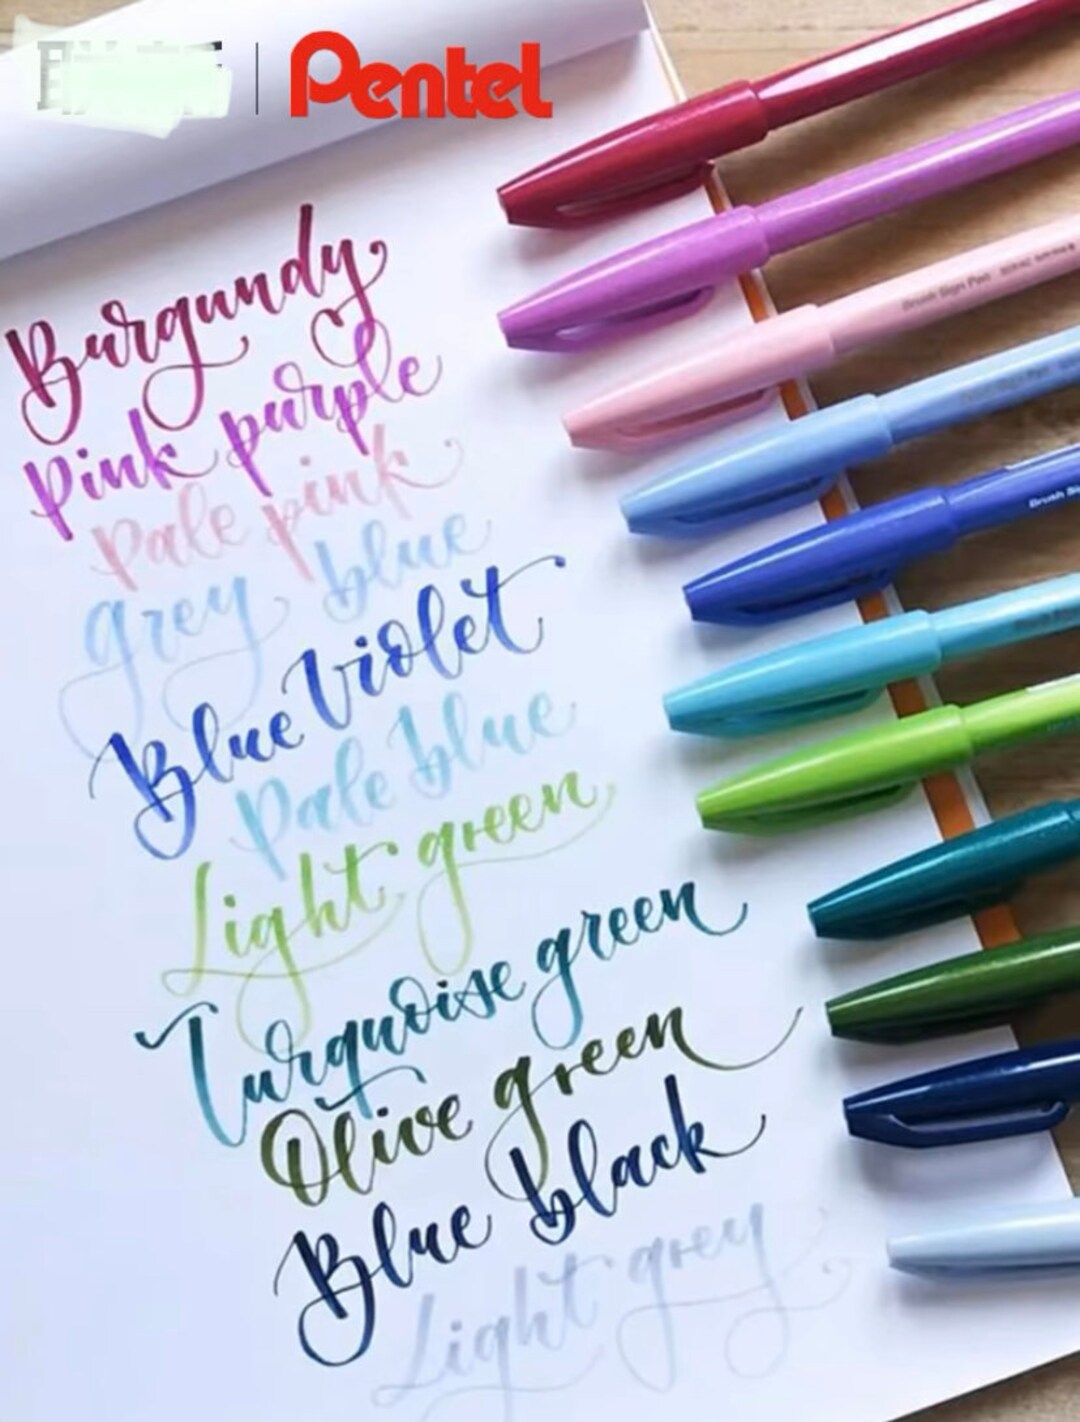 Pentel
Brush Sign Pen
Burgundy
Pink purple
Pale pink
grey blue
Blue Violet
Pale blue
Light green
Turquoise green
Olive green
Blue black
Light grey